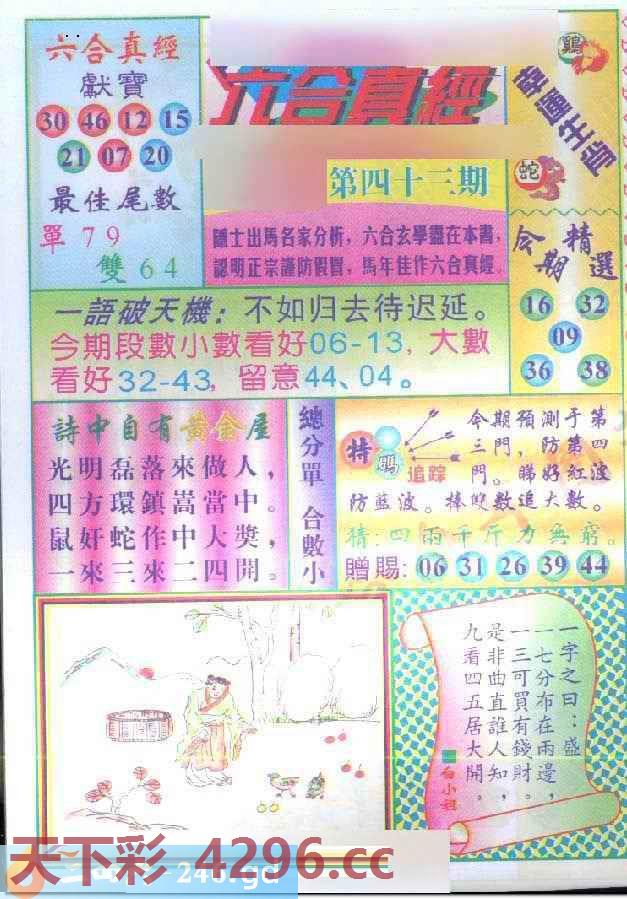 六合真經
獻寶
30 46 12 15
21 07 20
最佳尾數
單79
雙64
六合真經
第四十三期
隱士出馬名家分析，六合玄學盡在本書，
認明正宗謹防假冒，馬年佳作六合真經。
鷄
蛇
今期精選
16 32
09
36 38
一語破天機：不如归去待迟延。
今期段數小數看好06-13，大數
看好32-43，留意44、04。
詩中自有黃金屋
光明磊落來做人，
四方環鎮嵩當中。
鼠奸蛇作中大獎，
一來三來二四開。
總分單 合數小
特碼追踪
今期預測于第
三門，防第四
門。睇好紅波
防藍波。捧雙數追大數。
猜：四兩千斤力無窮。
贈賜：06 31 26 39 44
一字之曰：盛
一七分布在兩邊，
一三可買有錢財。
是非曲直誰人知，
九看四五居大開。
白小姐
天下彩 4296.cc
246.gd